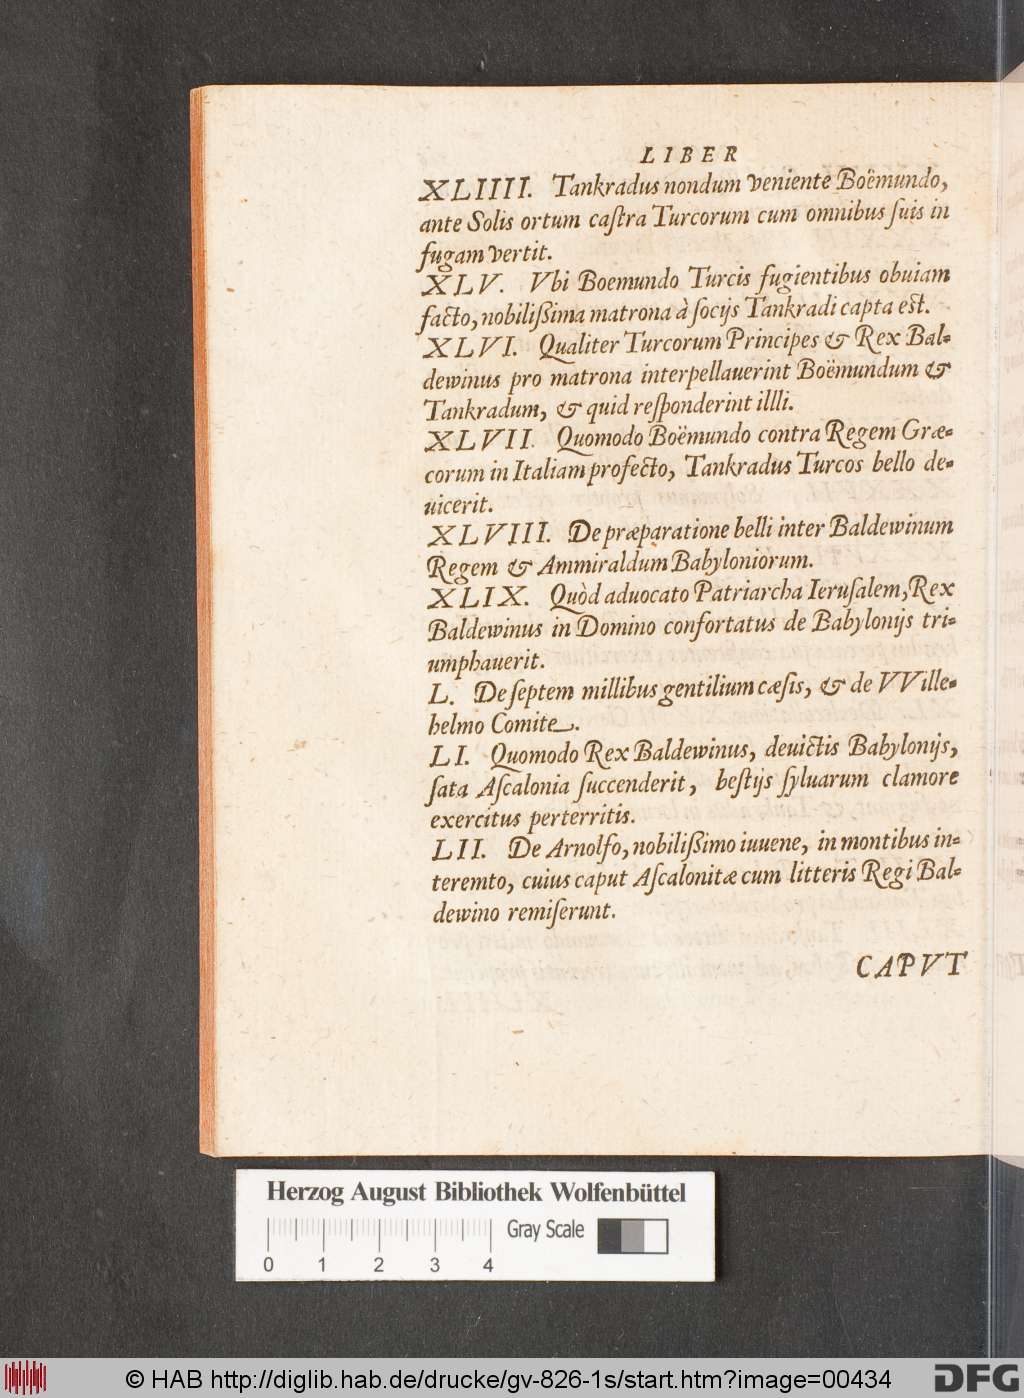 LIBER
XLIIII. Tankradus nondum veniente Boëmundo,
ante Solis ortum caſtra Turcorum cum omnibus ſuis in
fugam vertit.
XLV. Vbi Boemundo Turcis fugientibus obuiam
facto, nobilißima matrona à ſocijs Tankradi capta est.
XLVI. Qualiter Turcorum Principes & Rex Bal-
dewinus pro matrona interpellauerint Boëmundum &
Tankradum, & quid reſponderint illli.
XLVII. Quomodo Boëmundo contra Regem Græ-
corum in Italiam profecto, Tankradus Turcos bello de-
uicerit.
XLVIII. De præparatione belli inter Baldewinum
Regem & Ammiraldum Babyloniorum.
XLIX. Quòd aduocato Patriarcha Ieruſalem, Rex
Baldewinus in Domino confortatus de Babylonijs tri-
umphauerit.
L. De ſeptem millibus gentilium cæſis, & de VVille-
helmo Comite.
LI. Quomodo Rex Baldewinus, deuictis Babylonijs,
ſata Aſcalonia ſuccenderit, beſtijs ſyluarum clamore
exercitus perterritis.
LII. De Arnolfo, nobilißimo iuuene, in montibus in-
teremto, cuius caput Aſcalonitæ cum litteris Regi Bal-
dewino remiſerunt.
CAPVT
Herzog August Bibliothek Wolfenbüttel
Gray Scale
0 1 2 3 4
© HAB http://diglib.hab.de/drucke/gv-826-1s/start.htm?image=00434
DFG